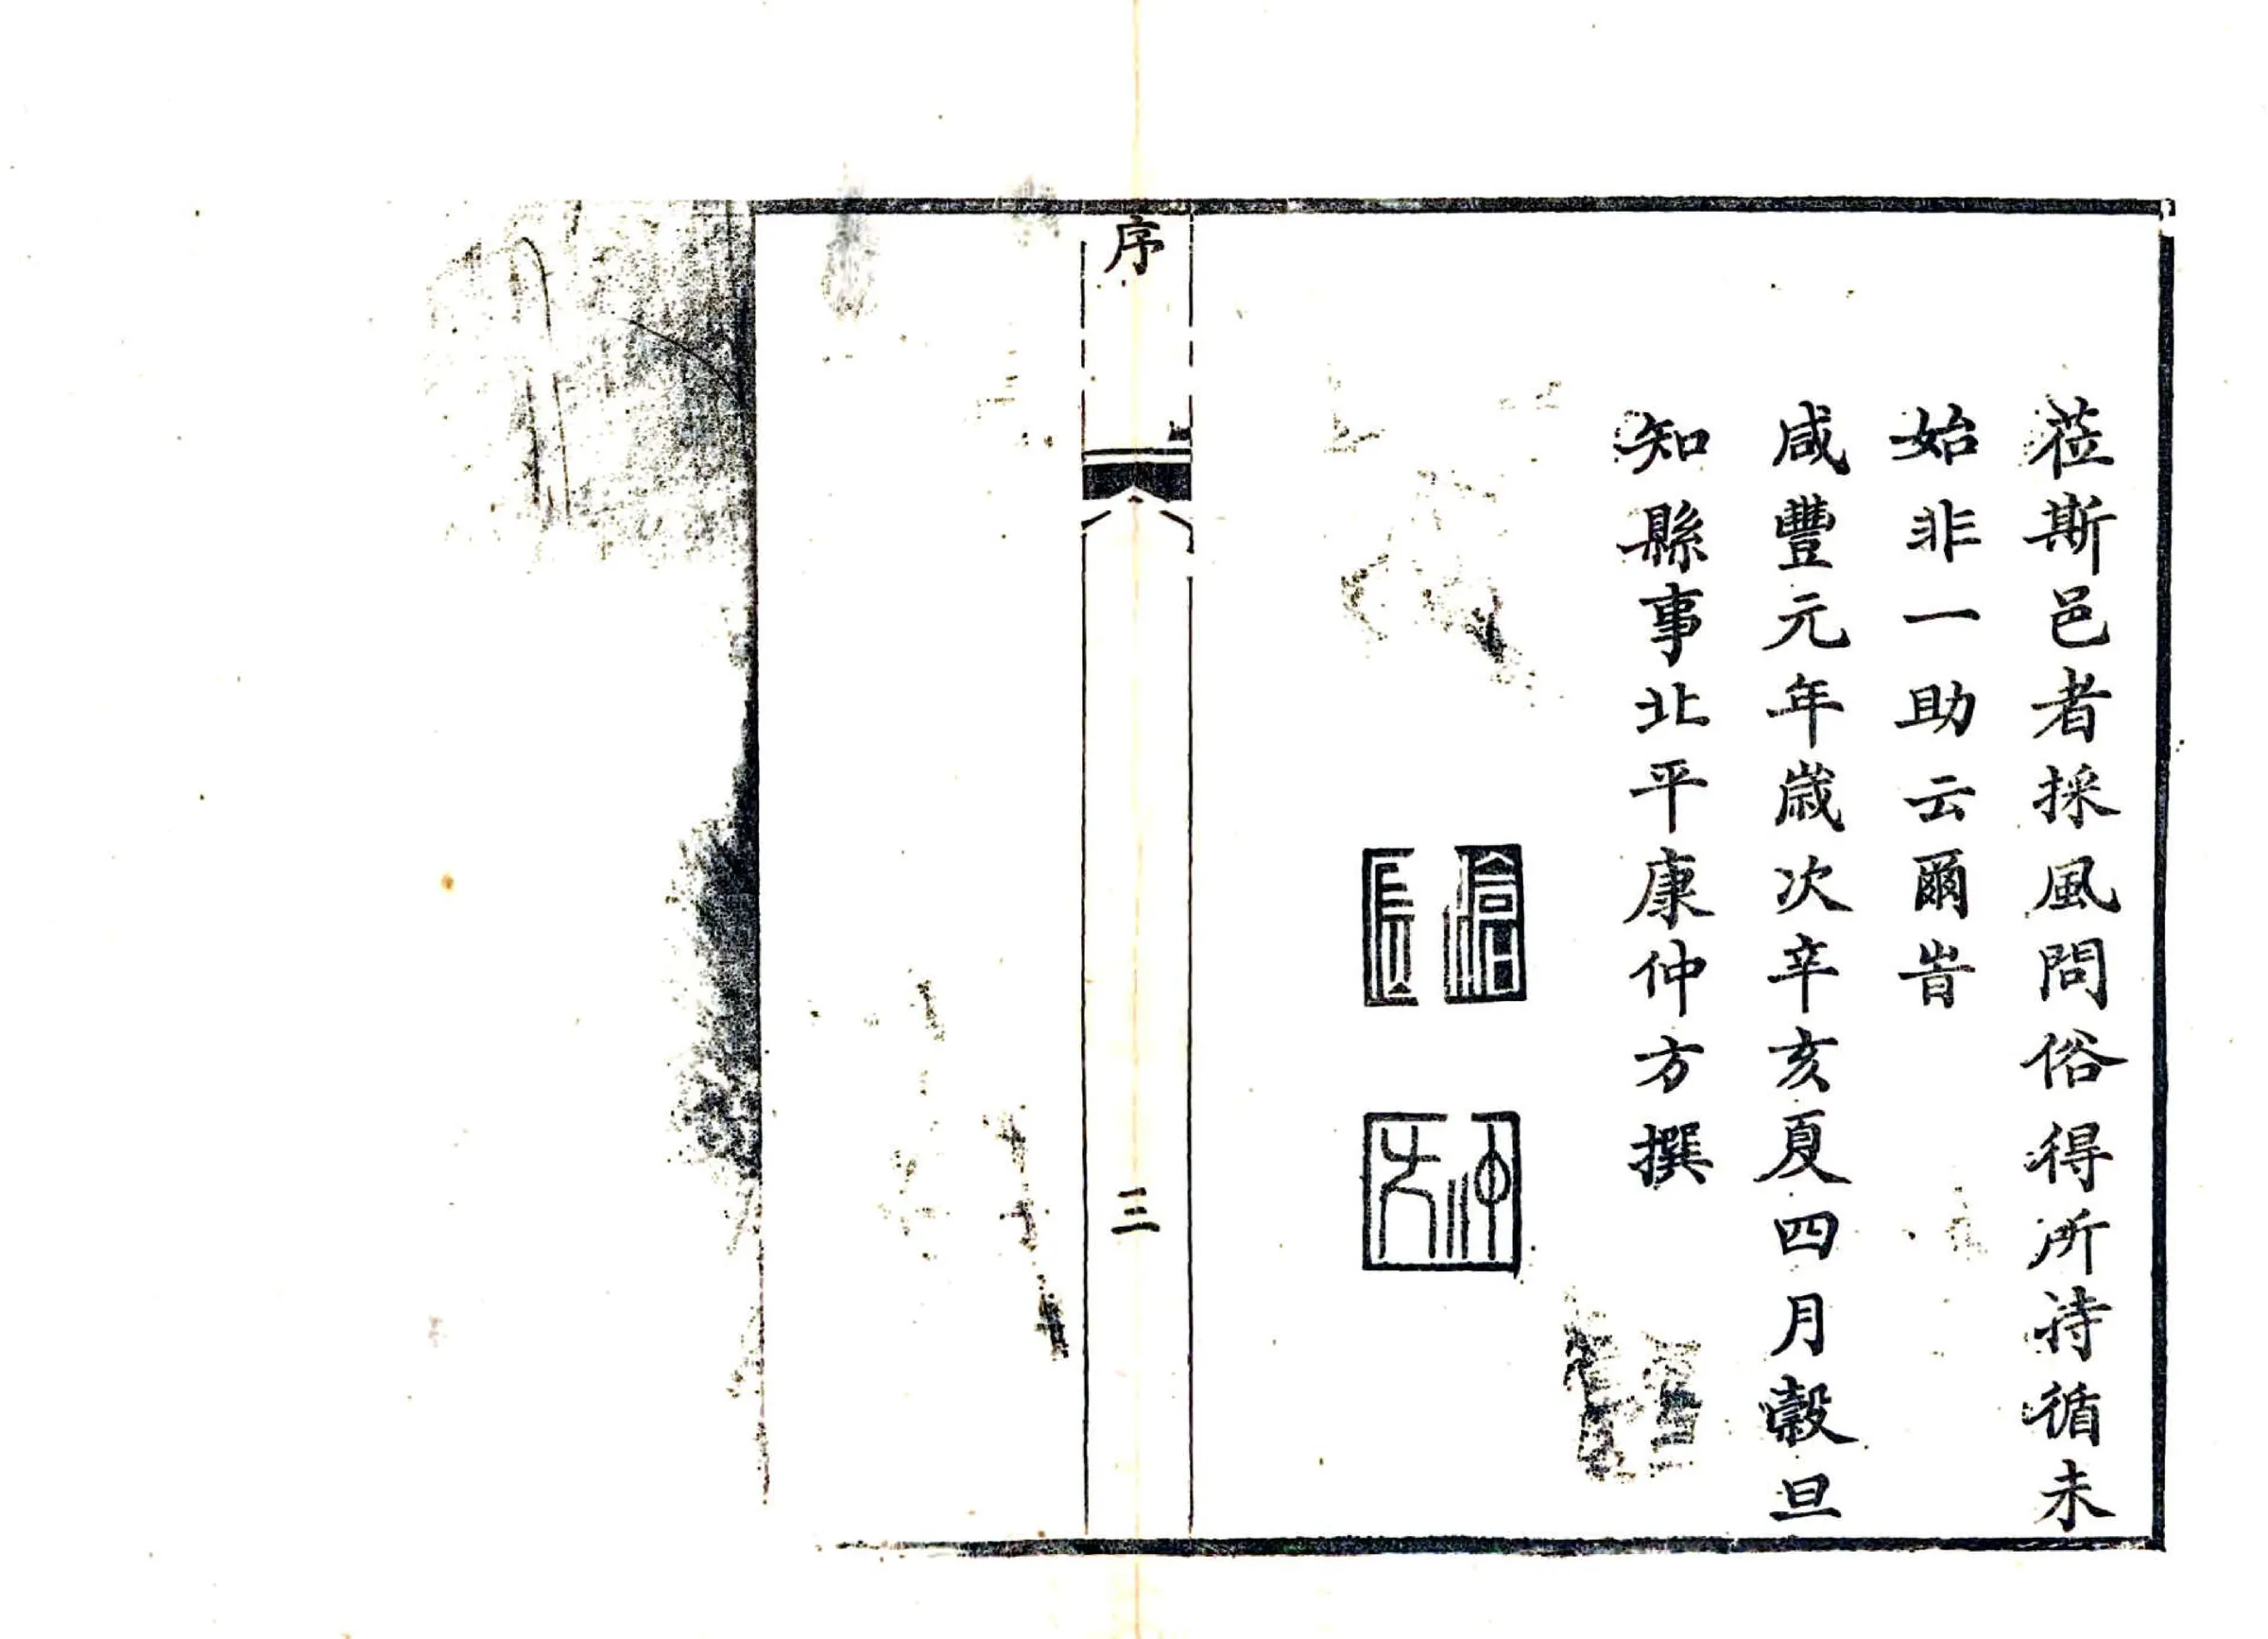 莅斯邑者採風問俗得所持循未
始非一助云爾旹
咸豐元年歲次辛亥夏四月穀旦
知縣事北平康仲方撰
序
三